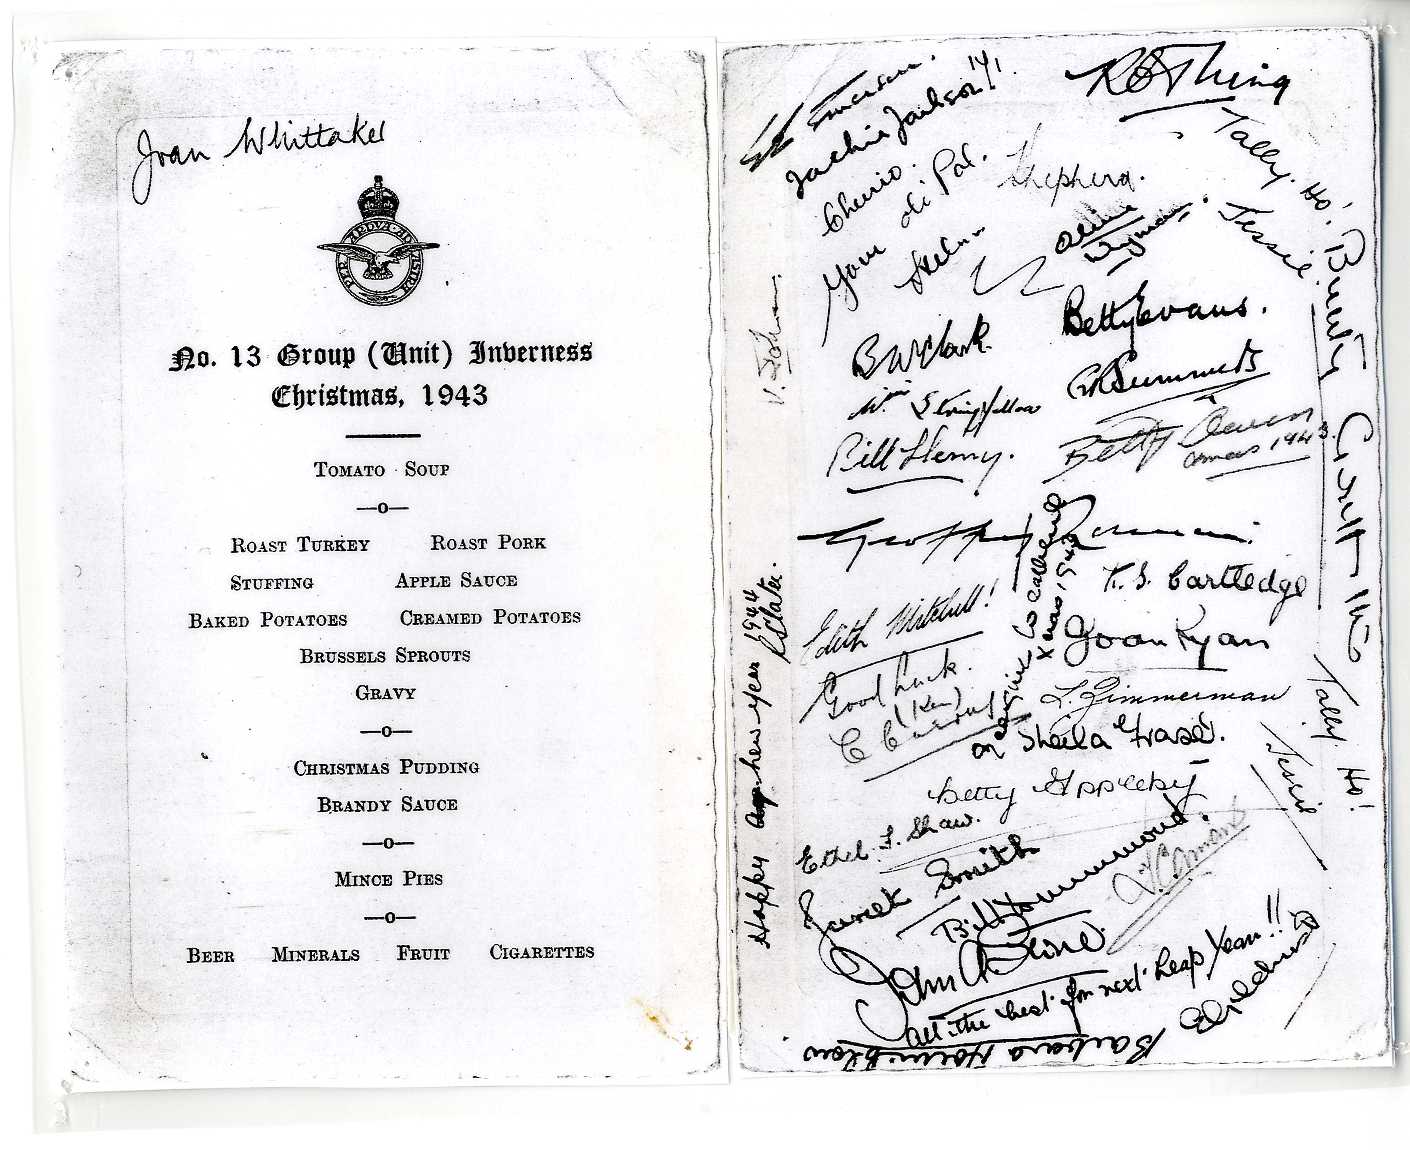 Joan Whittaker
PER ARDVA AD ASTRA
No. 13 Group (Unit) Inverness
Christmas, 1943
TOMATO SOUP
—o—
ROAST TURKEY ROAST PORK
STUFFING APPLE SAUCE
BAKED POTATOES CREAMED POTATOES
BRUSSELS SPROUTS
GRAVY
—o—
CHRISTMAS PUDDING
BRANDY SAUCE
—o—
MINCE PIES
—o—
BEER MINERALS FRUIT CIGARETTES
Emerson.
Jackie Jackson
Cheerio.
Your old Pal.
Helen
Shepherd.
Tally Ho!
Jessie
Bunty
Betty Evans.
B W Clark.
Wm Stringfellow
Bill Henry.
Betty
Xmas 1943.
Geoffrey
T. S. Cartledge
Edith Mitchell!
Joan Ryan
Xmas 1943
Good Luck.
(Ken)
L. Zimmerman
Sheila Fraser.
Betty Appleby
Ethel. F. Shaw.
Janet Smith
Bill Hammond.
John
All the best for next Leap Year!!
Barbara
Tally Ho!
Jessie
Happy new year 1944
R Slater.